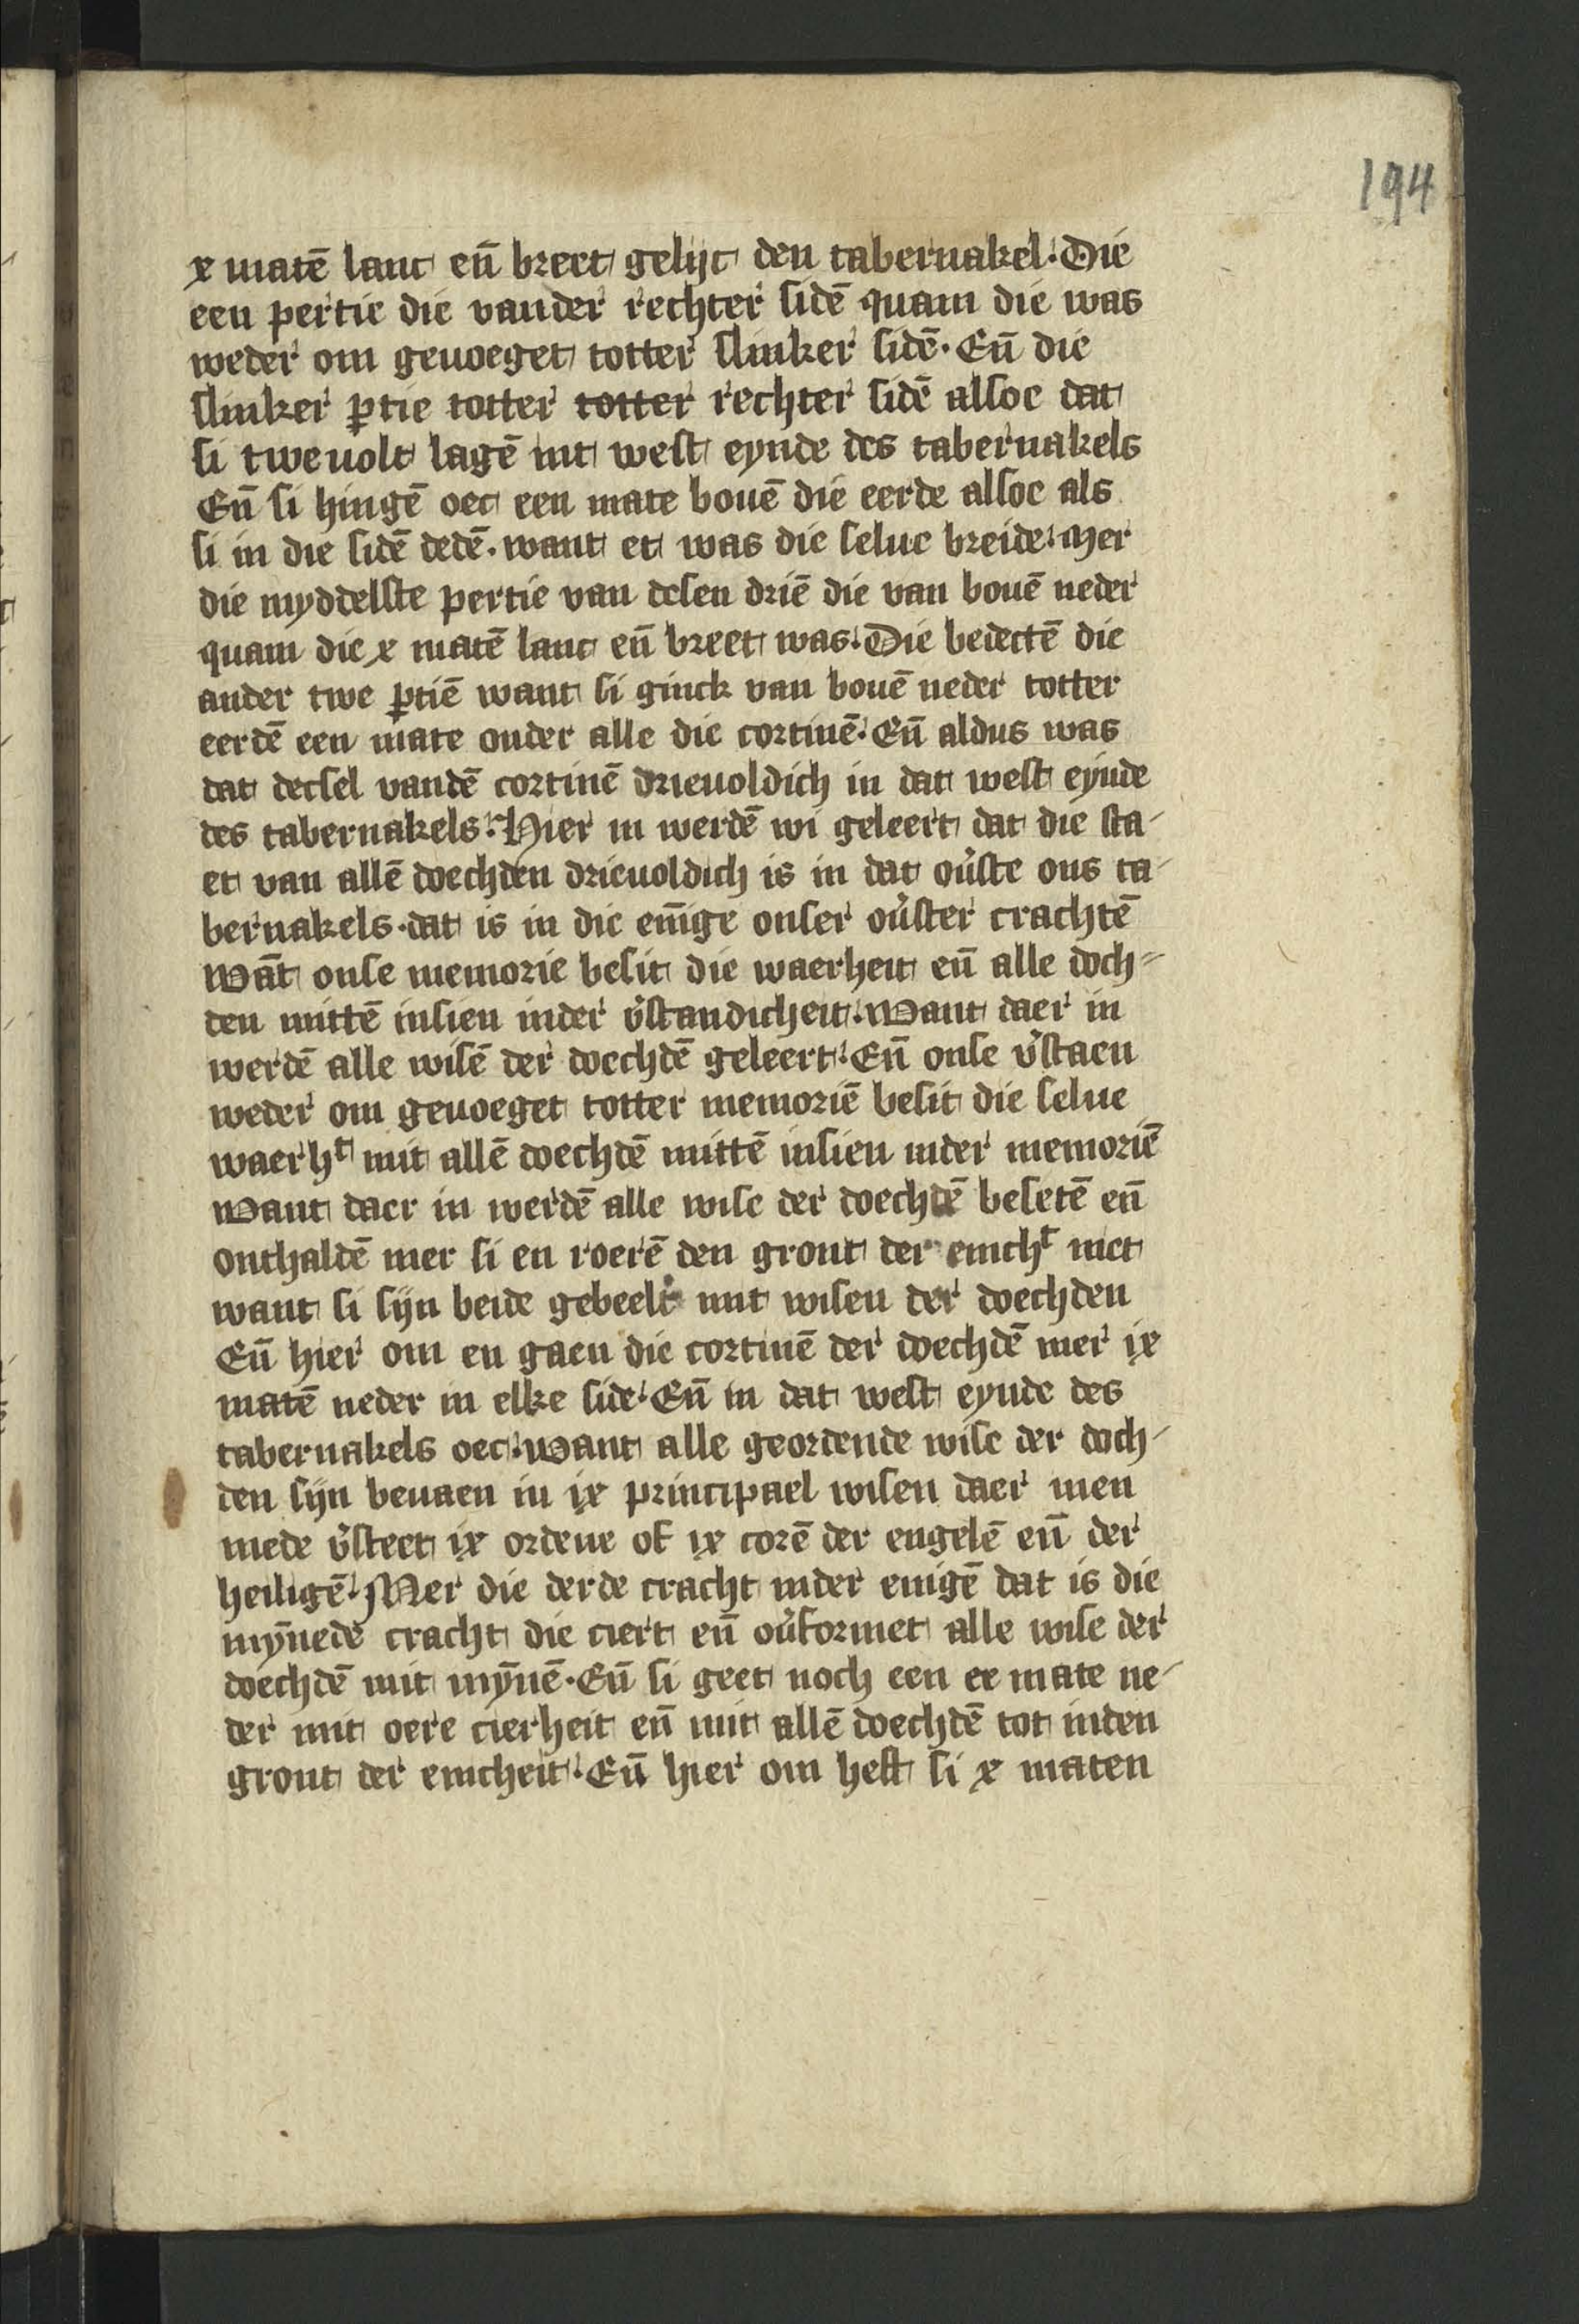 194
x matē lanc en̄ breet gelijc den tabernakel. Die
een pertie die vander rechter sidē quam die was
weder om geuoeget totter slinker sidē. En̄ die
slinker ꝑtie totter totter rechter sidē alsoe dat
si tweuolt lagē int west eynde des tabernakels
En̄ si hingē oec een mate bouē die eerde alsoe als
si in die sidē dedē. want et was die selue breide. Mer
die myddelste pertie van desen driē die van bouē neder
quam die x matē lanc en̄ breet was. Die bedectē die
ander twe ꝑtiē want si ginck van bouē neder totter
eerdē een mate onder alle die cortinē. En̄ aldus was
dat decsel vandē cortinē drieuoldich in dat west eynde
des tabernakels. Hier in werdē wi geleert dat die sta-
et van allē doechden drieuoldich is in dat ou̓ste ons ta-
bernakels. dat is in die en̄ige onser ou̓ster crachtē
Wāt onse memorie besit die waerheit en̄ alle doch-
den mittē insien inder v̓standicheit. Want daer in
werdē alle wisē der doechdē geleert. En̄ onse v̓staen
weder om geuoeget totter memoriē besit die selue
waerhᵗ mit allē doechdē mittē insien inder memoriē
Want daer in werdē alle wise der doechdē besetē en̄
onthaldē mer si en roerē den gront der enichᵗ niet
want si sijn beide gebeelt mit wisen der doechden
En̄ hier om en gaen die cortinē der doechdē mer ix
matē neder in elke side. En̄ in dat west eynde des
tabernakels oec. want alle geordende wise der doch-
den sijn beuaen in ix principael wisen daer men
mede v̓steet ix ordene of ix corē der engelē en̄ der
heiligē. Mer die derde cracht inder enigē dat is die
myn̄ede cracht die ciert en̄ ou̓formet alle wise der
doechdē mit myn̄ē. En̄ si geet noch een ee mate ne-
der mit oere cierheit en̄ mit allē doechdē tot inden
gront der enicheit. En̄ hier om heft si x maten